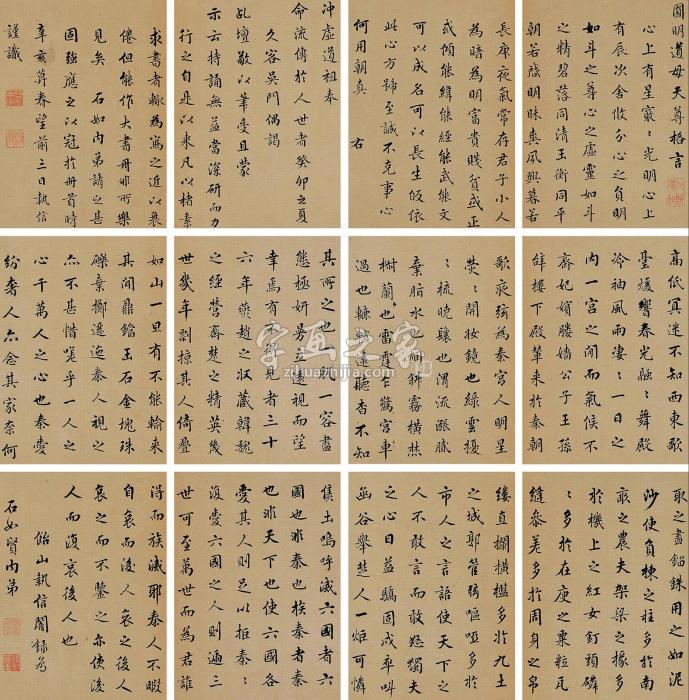 圓明道母天尊格言
心上有星燦〻光明心上
有辰次舍攸分心之貞明
如斗之尊心之虛靈如
之精碧落同清玉衡同平
朝若殘明昧爽夙興暮若
長庚夜氣常存君子小人
為暗為明富貴賤貧或正
或傾能緯能經能武能文
可以成名可以長生皈依
此心方號至誠不克事心
何用朝真 右
冲虛道祖奉
命流傳於人世者癸卯之夏
久客吳門偶謁
乩壇敬以筆受且蒙
示云持誦無益當深研而力
行之自是以來凡以楮素
求書者輒為寫之近以衰
倦但能作大書冊非所樂
見矣石如內弟請之甚
固強應之以冠於冊首時
辛亥暮春望前三日執信
謹識
高低冥迷不知西東歌
臺煖響春光融〻舞殿
冷袖風雨凄〻一日之
內一宮之間而氣候不
齊妃嬪媵嬙公子王孫
辭樓下殿輦來於秦朝
歌夜絃為秦宮人明星
熒〻開妝鏡也綠雲擾
〻梳曉鬟也渭流漲膩
棄脂水也斜霧橫焚
椒蘭也雷霆乍驚宮車
過也轆轆遠聽杳不知
其所之也一肌一容盡
態極妍縵立遠視而望
幸焉有不得見者三十
六年燕趙之收藏韓魏
之經營齊楚之精英幾
世幾年剽掠其人倚疊
如山一旦有不能輸來
其間鼎鐺玉石金塊珠
礫棄擲邐迤秦人視之
亦不甚惜嗟乎一人之
心千萬人之心也秦愛
紛奢人亦念其家奈何
取之盡錙銖用之如泥
沙使負棟之柱多於南
畝之農夫架梁之椽多
於機上之紅女釘頭磷
〻多於在庾之粟粒瓦
縫參差多於周身之帛
縷直欄橫檻多於九土
之城郭管絃嘔啞多於
市人之言語使天下之
人不敢言而敢怒獨夫
之心日益驕固戍卒叫
函谷舉楚人一炬可憐
焦土嗚呼滅六國者六
國也非秦也族秦者秦
也非天下也使六國各
愛其人則足以拒秦〻
復愛六國之人則遞三
世可至萬世而為君誰
得而族滅耶秦人不暇
自哀而後人哀之後人
哀之而不鑒之亦使後
人而復哀後人也
飴山執信閣錄為
石如賢內弟
字画之家
zihuazhijia.com